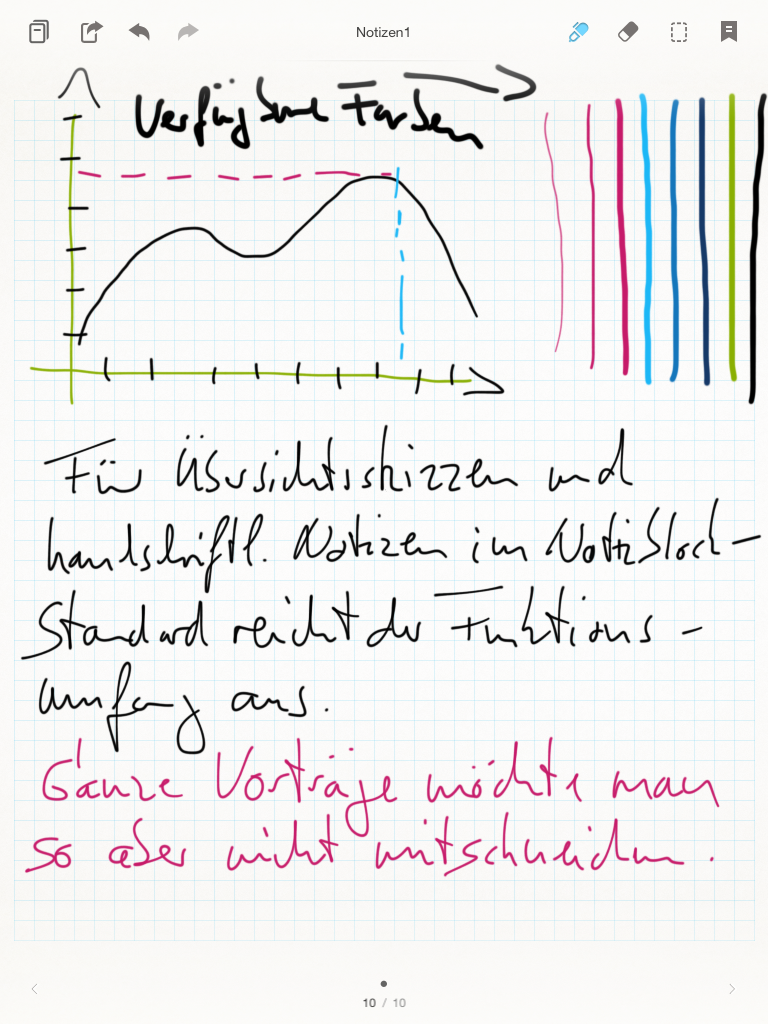 Notizen1
Verfügbare Farben
Für Übersichtsskizzen und
handschriftl. Notizen im Notizblock-
Standard reicht der Funktions-
umfang aus.
Ganze Vorträge möchte man
so aber nicht mitschneiden.
10 / 10